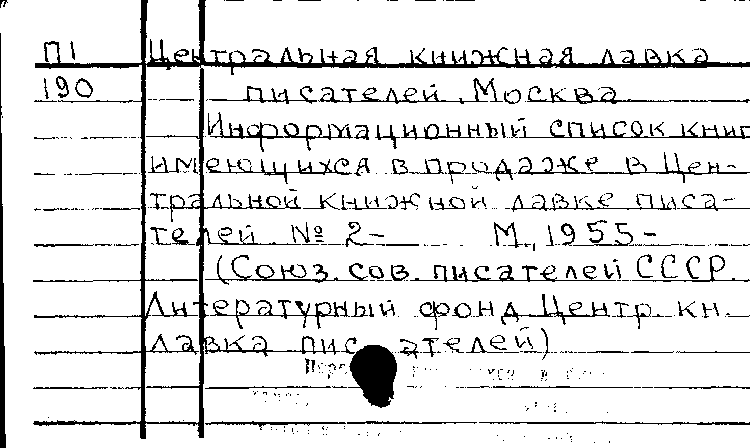 П1 Центральная книжная лавка
190 писателей. Москва
Информационный список книг
имеющихся в продаже в Цен-
тральной книжной лавке писа-
телей. № 2- М., 1955-
(Союз. сов. писателей СССР.
Литературный фонд Центр. кн.
лавка писателей)